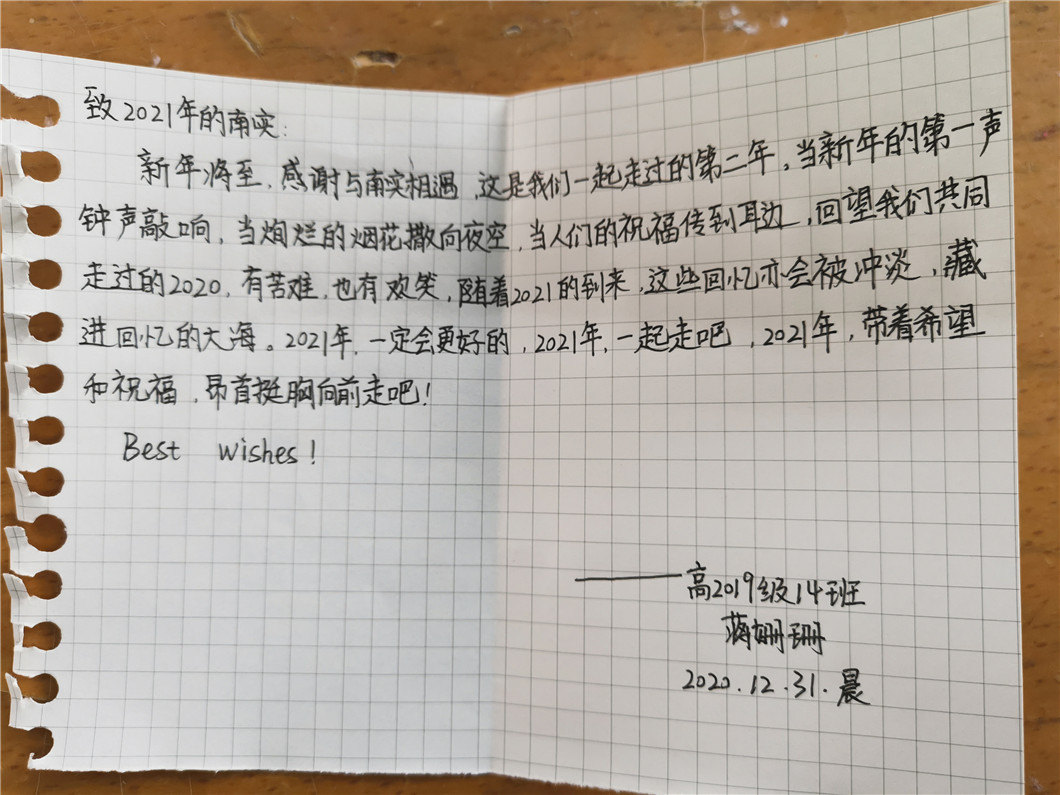 致2021年的南实:
新年将至,感谢与南实相遇,这是我们一起走过的第二年。当新年的第一声
钟声敲响,当炯烂的烟花撒向夜空,当人们的祝福传到耳边,回望我们共同
走过的2020,有苦难,也有欢笑,随着2021的到来,这些回忆亦会被冲淡,藏
进回忆的大海。2021年,一定会更好的,2021年,一起走吧,2021年,带着希望
和祝福,昂首挺胸向前走吧!
Best wishes!
——高2019级14班
蒋姗珊
2020.12.31.晨